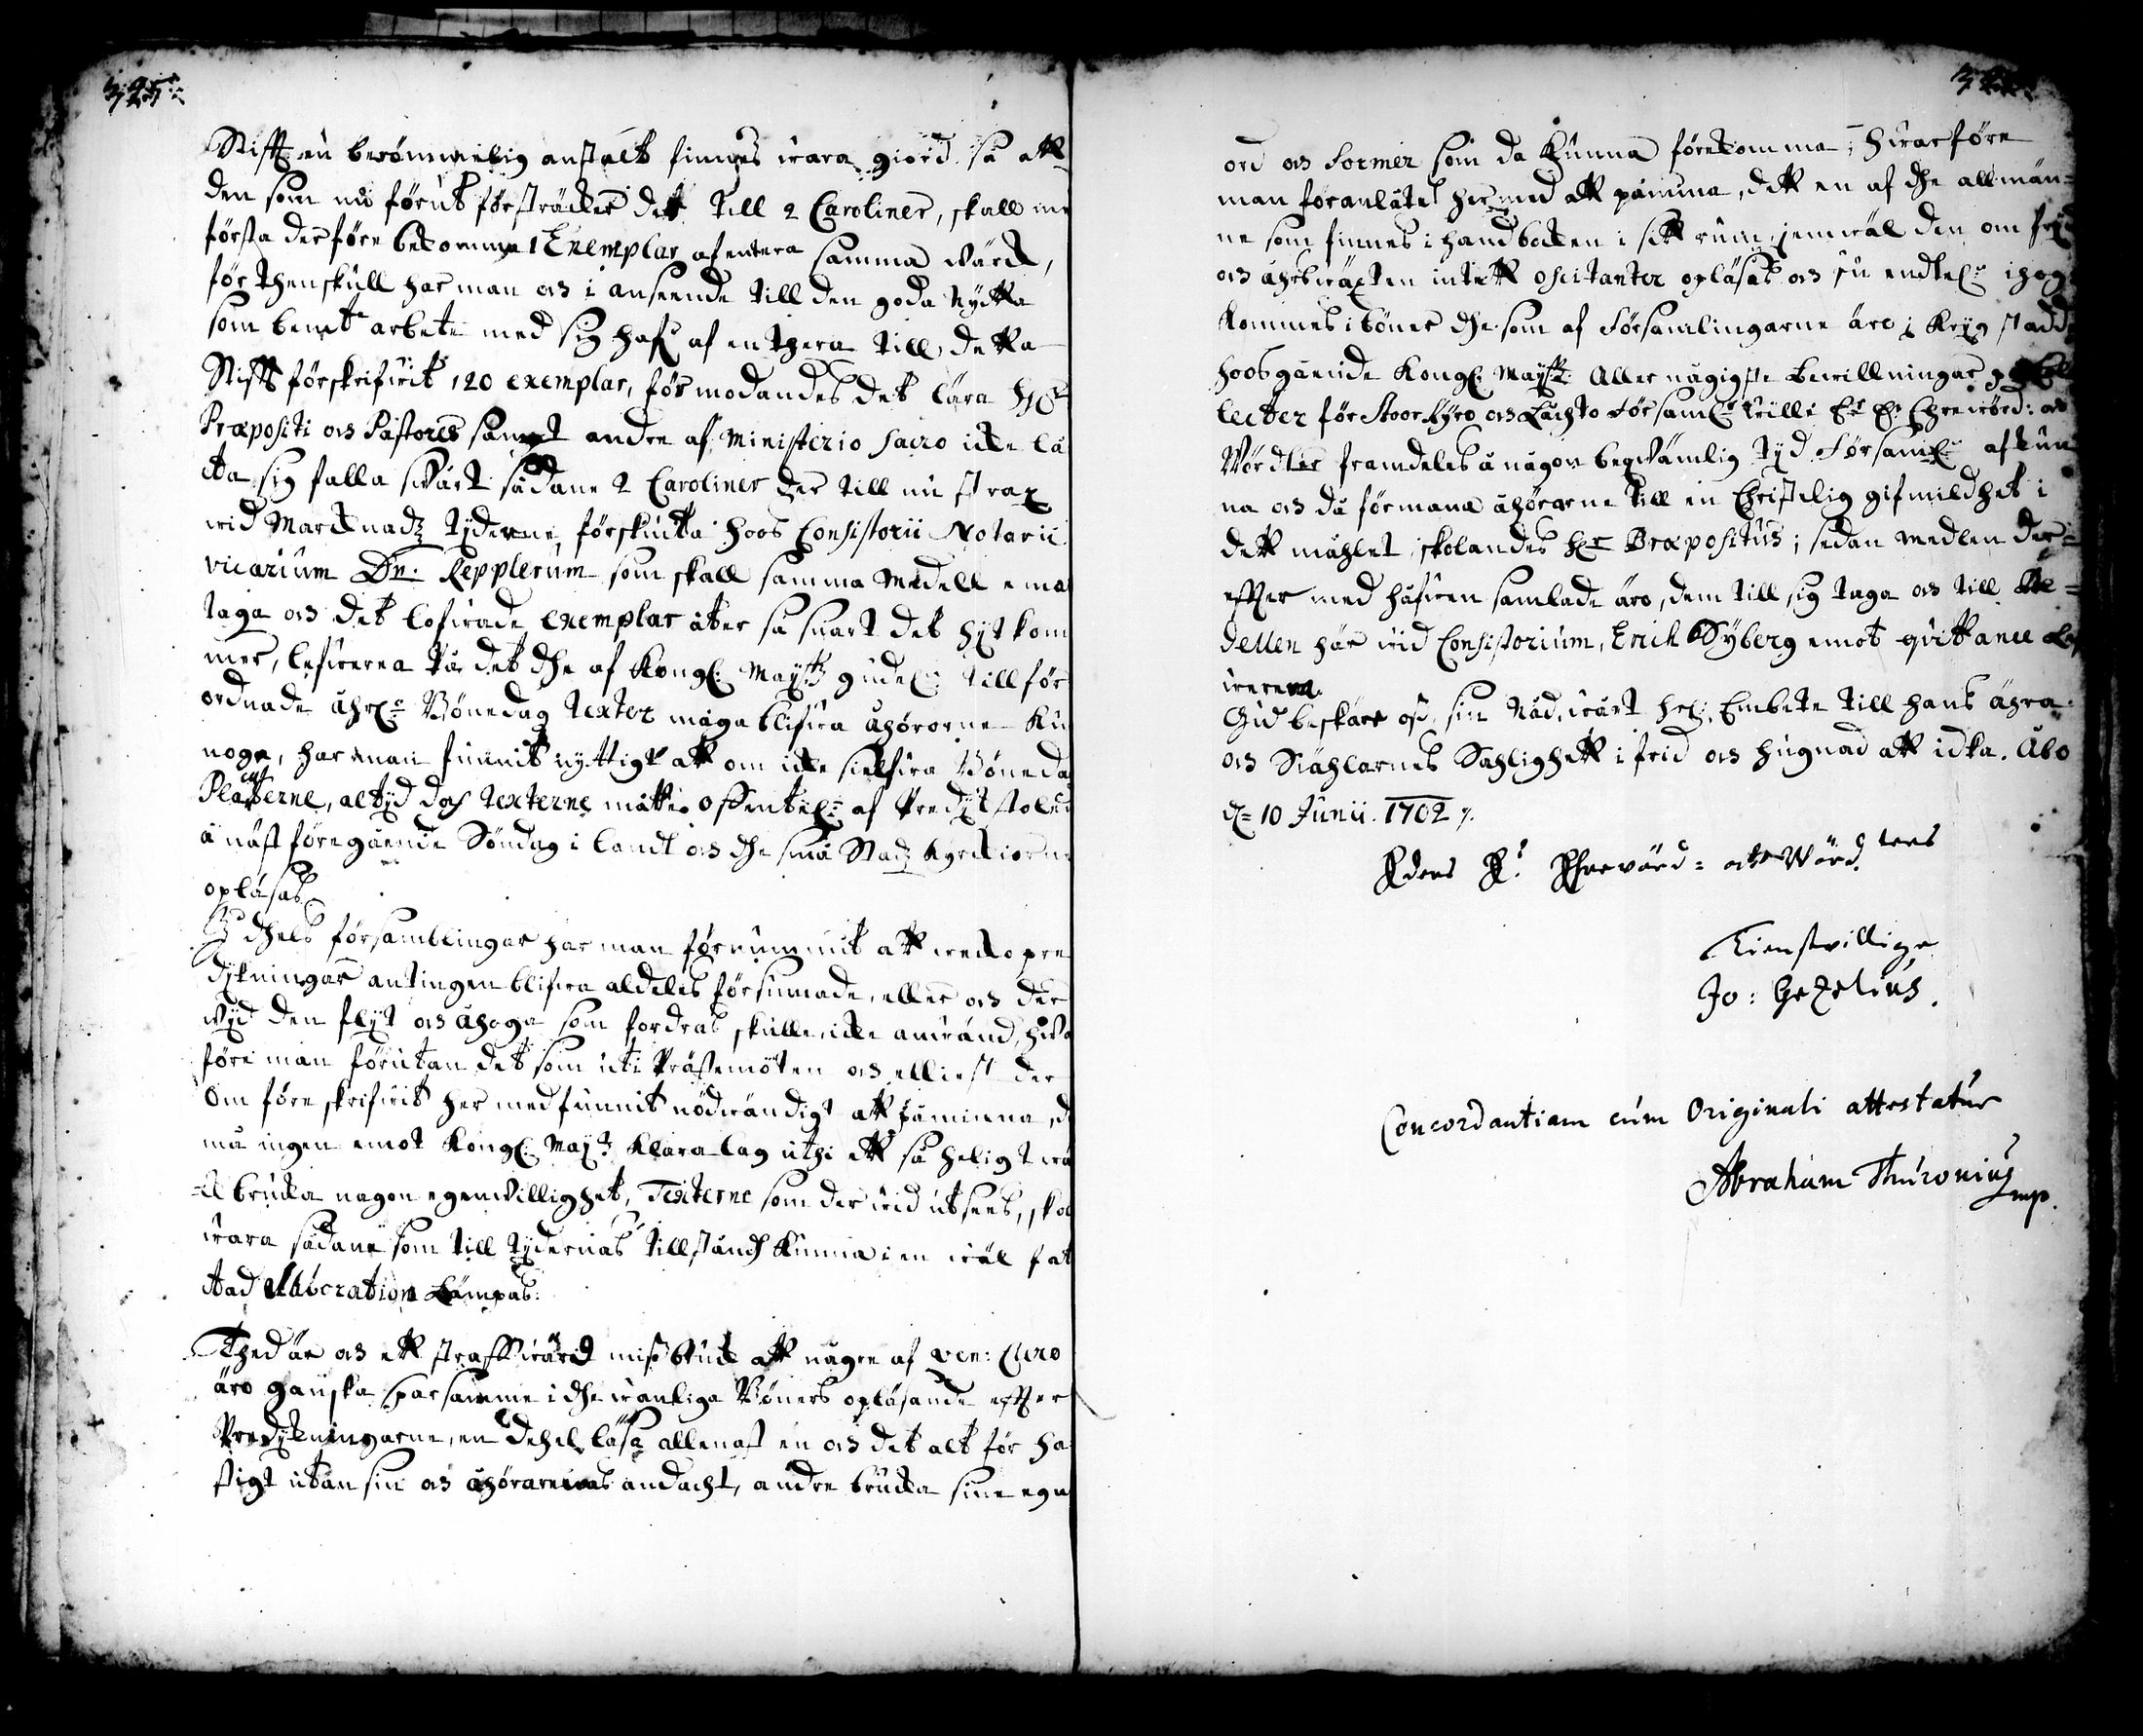 325.
Stifft en berömmelig anstalt finnes wara giord så att
den som nu föruth försträcker dett till 2 Caroliner, skall me
första derföre bekomma 1 Exemplar af entera samma wärdt,
för thenskull har man och i anseende till den goda nytta
som bemt. arbete med sig haf. af enthera till detta
Stifft förskrifwit 120 exemplar, förmodandes det lära H.r
Præpositi och Pastores sampt andre af Ministerio sacro icke lå
ta sig falla swårt sådane 2 Caroliner der till nu strax
wid Marcknadz tyderne förskiuta hoos Consistorii Notarii
vicarium Dn. Kepplerum som skall samma medell ema
taga och det lofwade exemplar åter så snart det hijt kom
mer, lefwerera På det dhe af Kongl. Maij:tt gudel. till för
ordnade åhrl. Bönedag texter måga blifwa åhörorne ku
noge, har man funnit nyttigt att om icke sielfwa Bönedag
Placaterne, altyd doch texterne måtte offentel. af Predijkstolen
å näst föregående Söndag i landt och dhe små Stadz kyrckiorne
opläsas.
I dhels församblingar har man förnummit att weckopre
dijkningar antingen blifwa aldeles försumade, eller och der
wijd den flijt och åhoga som fordras skulle, icke anwänd, hwa
före man förutan det som uti Prästemöten och elliest der
om före skrifwit her med funnit nödwändigt att påminna, d
må ingen emot Kongl. Maij:tz klara lag uthi ett så heligt wä
rck bruka någon egenwillighet, Texterne som der wid utsees, skol
wara sådane som till tydernas tillstånd kunna i en wäl fat
tad Elaboration lämpas.
Thed är och ett straffwärd missbruk att någre af ven: Clero
äro ganska sparsamme i dhe wanliga Böners opläsande effter
Predijkningarne, en dehel läsa allenast en och det alt för ha
stigt utan sin och åhörarenas andacht, andre bruka sine egne
ord och Former som då kunna förekomma; hwarföre
man föranlåtes hermed att påminna, dett en af dhe allmän=
ne som finnes i handboken i sitt rum, jemwäl den om frijd
och åhrswäxten intett oscitanter opläses och nu endtel. ihog
kommes i böner dhe som af Församlingarne äre i Krijg stadd
hoosgående Kongl. Maij:ttz Aller nådigste bewillningar
lecter för Stoorkyro och Lachto Församl. wille E:r E: Ehrewörd: och
Wördter framdeles å någon beqwämlig tyd Församl. afkun
na och då förmana åhörarne till en Christelig gifmildhet i
dett måhlet, skolandes H:r Præpositus; sedan medlen der=
effter med håfwen samlade äro, dem till sig taga och till Æ=
dellen här wid Consistorium, Erich Nyberg emot quittance lef
werera.
Gud beskäre oss sin Nåd, wårt hel. Embete till hans ähra
och Siählarnes Sahlighett i frid och hugnad att idka. Åbo
d. 10 Junii. 1702 ⁒.
Eders E:r Ehrevörd= och Wörd.tees
Tienstvillige
Jo: Gezelius.
Concordantiam cum Originali attestatur
Abraham Thuronius
mp.